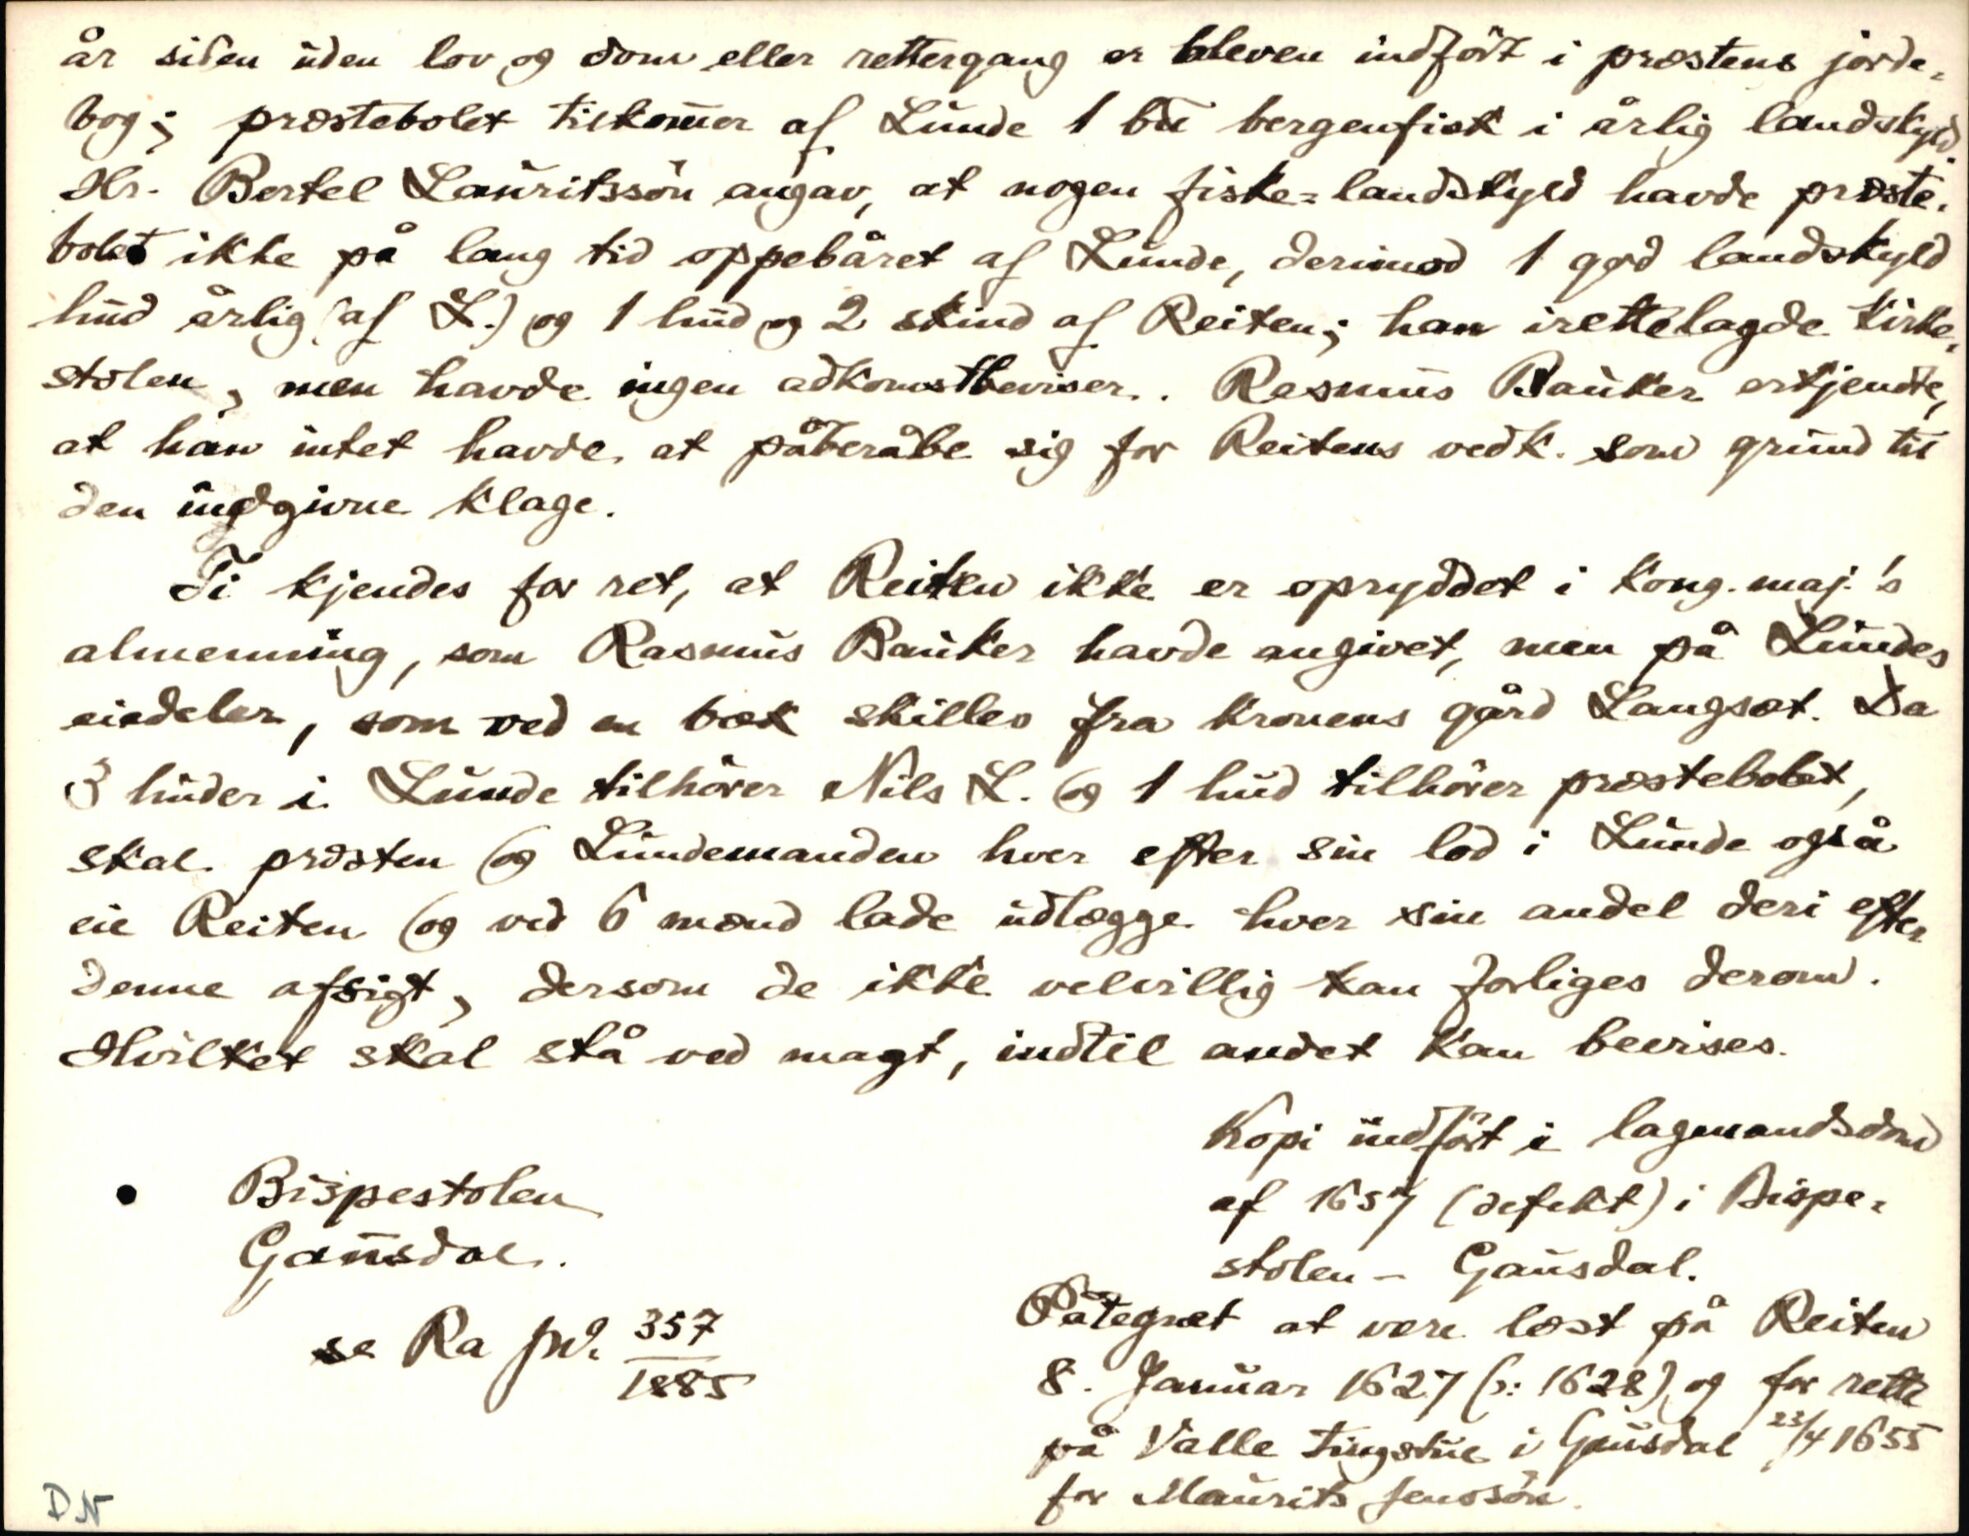 år siden uden lov og dom eller rettergang er bleven indført i præstens jorde-
bog; præstebolet tilkommer af Lunde 1 bu bergenfisk i årlig landskyld.
Hr. Bertel Lauritssøn angav, at nogen fiske-landskyld havde præste-
bolet ikke på lang tid oppebåret af Lunde, derimod 1 god landskyld
hud årlig (af L.) og 1 hud og 2 skind af Reiten; han irettelagde kirke-
stolen, men havde ingen adkomstbeviser. Rasmus Bauker erkjendte,
at han intet havde at påberåbe sig for Reitens vedk. som grund til
den indgivne klage.
Ti kjendes for ret, at Reiten ikke er opryddet i kong. maj.'s
almenning, som Rasmus Bauker havde angivet, men på Lundes
eiedeler, som ved en bæk skilles fra kronens gård Langsæt. Da
3 huder i Lunde tilhører Nils L. og 1 hud tilhører præstebolet,
skal præsten og Lundemanden hver efter sin lod i Lunde også
eie Reiten og ved 6 mænd lade udlægge hver sin andel deri efter
denne afsigt, dersom de ikke velvillig kan forliges derom.
Hvilket skal stå ved magt, indtil andet kan bevises.
Kopi indført i lagmandsdom
af 1657 (defekt) i Bispe-
stolen - Gausdal.
Påtegnet at være læst på Reiten
8. Januar 1627 (ɔ: 1628) og for rette
på Valle tingstue i Gausdal 23/4 1655
for Maurits Jenssøn.
• Bispestolen
Gausdal.
se Ra jnr. 357/1885
DN